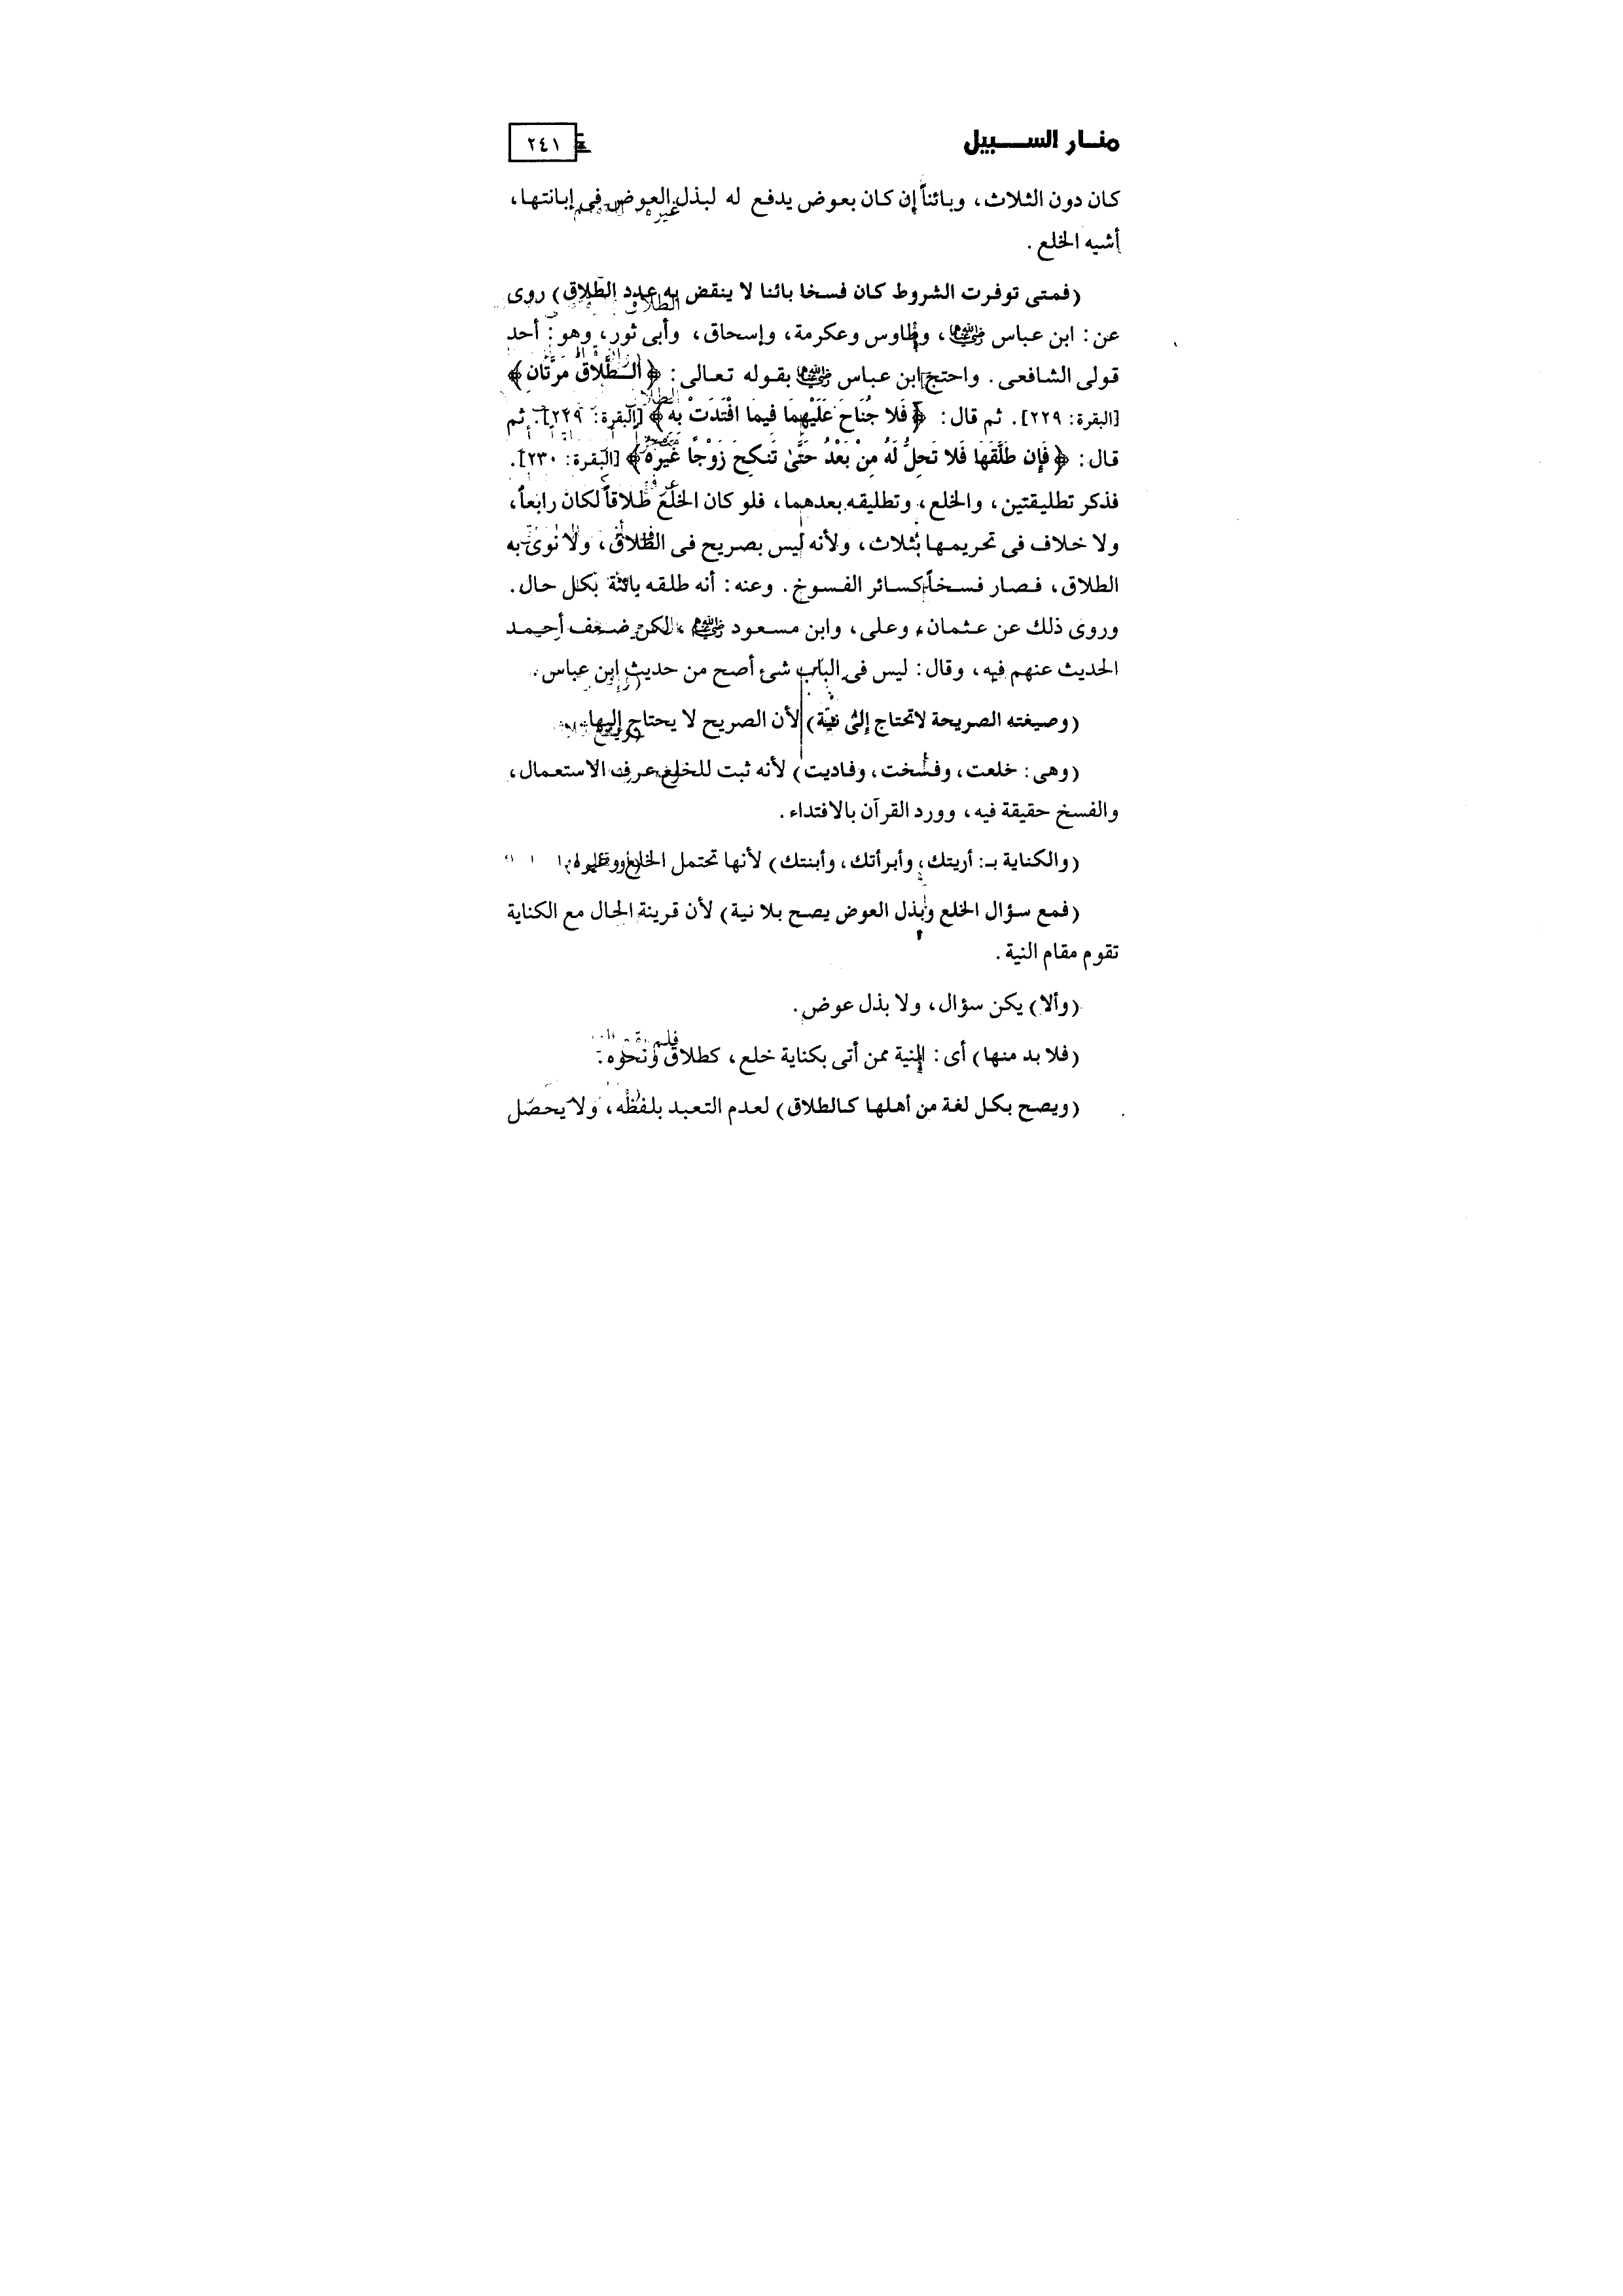 منار السبيل
٢٤١
كان دون الثلاث، وبائناً إن كان بعوض يدفع له لبذل العوض فى إبانتها،
أشبه الخلع.
(فمتى توفرت الشروط كان فسخا بائنا لا ينقض به عدد الطلاق) روى
عن: ابن عباس رضي الله عنهما، وطاوس وعكرمة، وإسحاق، وأبى ثور، وهو: أحد
قولى الشافعى. واحتج ابن عباس رضي الله عنهما بقوله تعالى: ﴿الطَّلاقُ مَرَّتَانِ﴾
[البقرة: ٢٢٩]. ثم قال: ﴿فَلا جُنَاحَ عَلَيْهِمَا فِيمَا افْتَدَتْ بِهِ﴾ [البقرة: ٢٢٩]. ثم
قال: ﴿فَإِن طَلَّقَهَا فَلا تَحِلُّ لَهُ مِنْ بَعْدُ حَتَّىٰ تَنكِحَ زَوْجًا غَيْرَهُ﴾ [البقرة: ٢٣٠].
فذكر تطليقتين، والخلع، وتطليقه بعدهما، فلو كان الخلع طلاقاً لكان رابعاً،
ولا خلاف فى تحريمها بثلاث، ولأنه ليس بصريح فى الطلاق، ولا نوى به
الطلاق، فصار فسخاً كسائر الفسوخ. وعنه: أنه طلقه بائنة بكل حال.
وروى ذلك عن عثمان، وعلى، وابن مسعود رضي الله عنهم، لكن ضعف أحمد
الحديث عنهم فيه، وقال: ليس فى الباب شئ أصح من حديث ابن عباس.
(وصيغته الصريحة لا تحتاج إلى نية) لأن الصريح لا يحتاج إليها.
(وهى: خلعت، وفسخت، وفاديت) لأنه ثبت للخلع عرف الاستعمال،
والفسخ حقيقة فيه، وورد القرآن بالافتداء.
(والكناية بـ: أريتك، وأبرأتك، وأبنتك) لأنها تحتمل الخلع وغيره.
(فمع سؤال الخلع وبذل العوض يصح بلا نية) لأن قرينة الحال مع الكناية
تقوم مقام النية.
(وألا) يكن سؤال، ولا بذل عوض.
(فلا بد منها) أى: النية ممن أتى بكناية خلع، كطلاق ونحوه.
(ويصح بكل لغة من أهلها كالطلاق) لعدم التعبد بلفظه، ولا يحصل